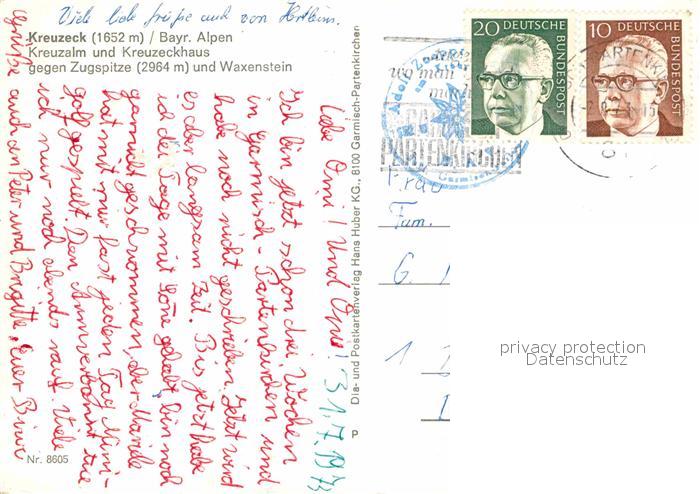 Viele liebe Grüße auch von
Kreuzeck (1652 m) / Bayr. Alpen
Kreuzalm und Kreuzeckhaus
gegen Zugspitze (2964 m) und Waxenstein
31.7.1973
Liebe Omi! Und Opa!
Ich bin jetzt schon drei Wochen
in Garmisch-Partenkirchen und
habe noch nicht geschrieben. Jetzt wird
es aber langsam Zeit. Bis jetzt habe
ich die Tage mit gehabt, bin noch
garnicht geschwommen, der
hat mit mir fast jeden Tag Mini-
golf gespielt. Den tue
ich nur noch abends rauf. Viele
Grüße auch an Peter und Brigitte, Euer
Nr. 8605
Dia- und Postkartenverlag Hans Huber KG., 8100 Garmisch-Partenkirchen
P
20 DEUTSCHE BUNDESPOST
10 DEUTSCHE BUNDESPOST
wo man
PARTENKIRCHEN
Frau
Fam.
G.
1
privacy protection
Datenschutz